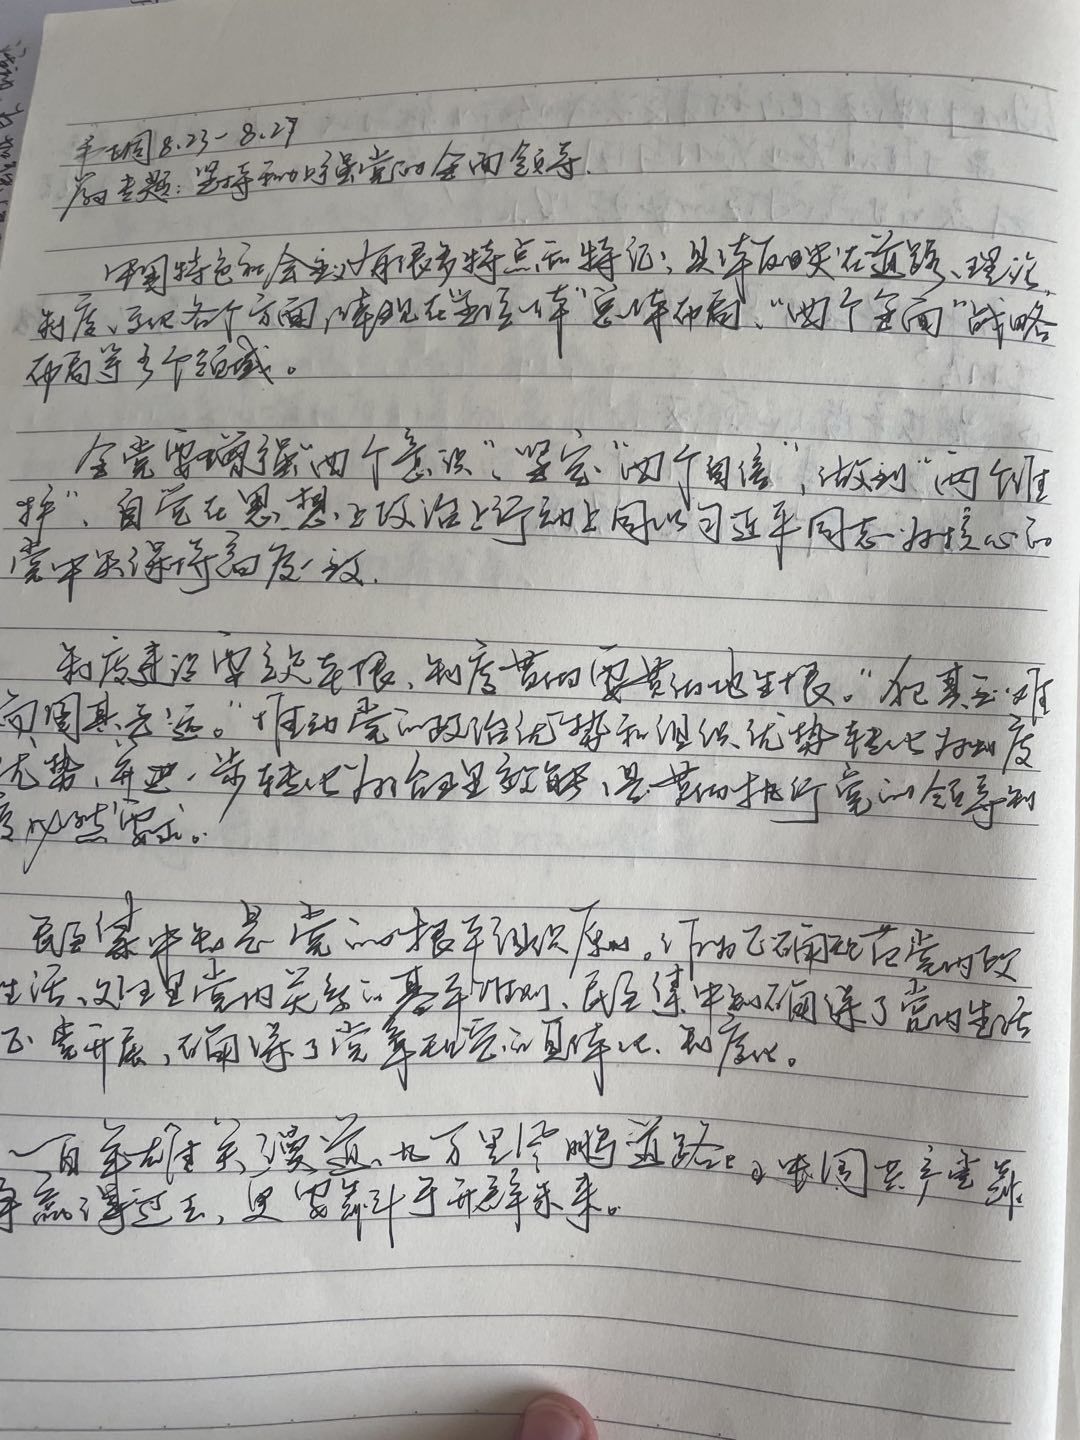 第七周 8.23-8.27
专题：坚持和加强党的全面领导.
中国特色社会主义有很多特点和特征，具体反映在道路、理论、
制度、文化各个方面，体现在"五位一体"总体布局、"四个全面"战略
布局等多个领域。
全党要增强"四个意识"、坚定"四个自信"，做到"两个维
护"、自觉在思想上政治上行动上同以习近平同志为核心的
党中央保持高度一致.
制度建设要立足本根、制度贯彻要贯彻地生根。"犯其至难
而图其至远。"推动党的政治优势和组织优势转化为制度
优势、并进一步转化为治理效能、是贯彻执行党的领导制
度必然要求。
民主集中制是党的根本组织原则。作为正确规范党内政
生活、处理党内关系的基本准则、民主集中制确保了党内生活
正常开展，确保了党章规定的具体化、制度化。
一百年雄关漫道、九万里风鹏道路。中国共产党
赢得过去，更要奋斗于开辟未来。